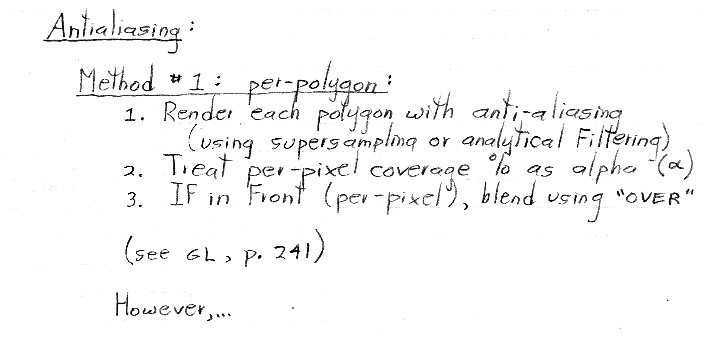 Antialiasing:
Method #1: per-polygon:
1. Render each polygon with anti-aliasing
(using supersampling or analytical Filtering)
2. Treat per-pixel coverage % as alpha (α)
3. IF in Front (per-pixel), blend using "OVER"
(see GL, p. 241)
However,...